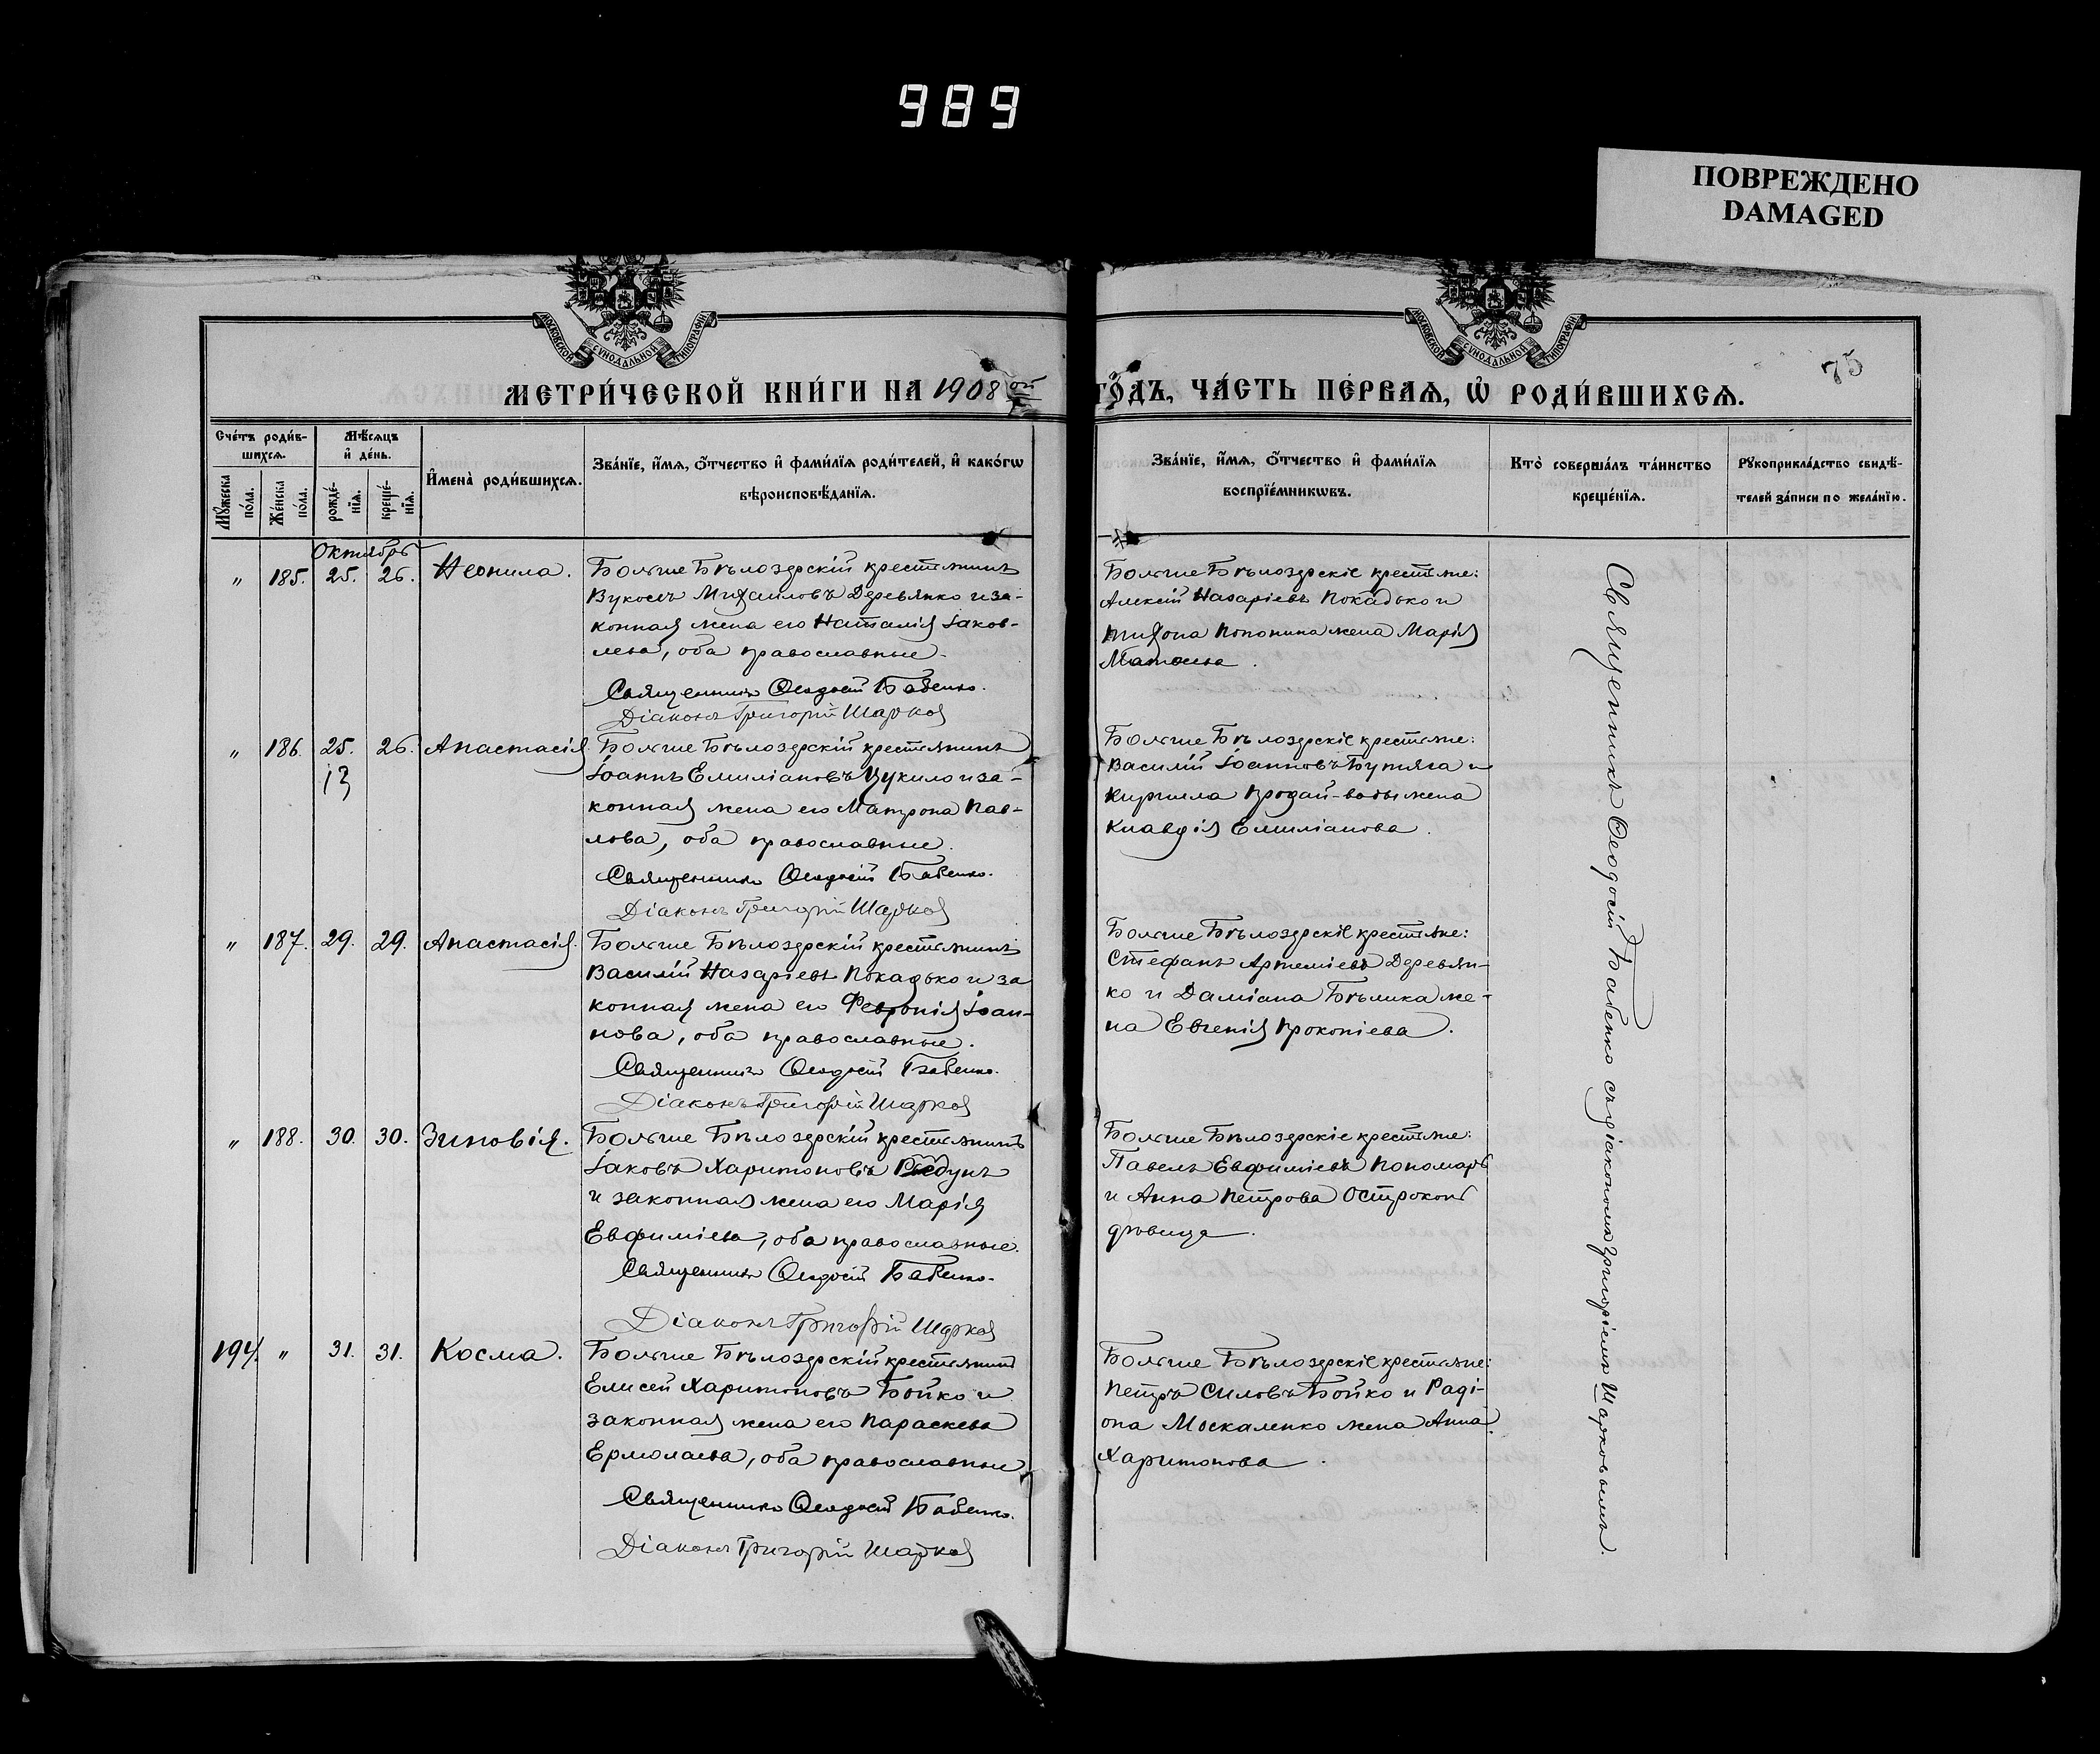 989
ПОВРЕЖДЕНО
DAMAGED
МОСКОВСКОЙ СѴНОДАЛЬНОЙ ТИПОГРАФІИ
МОСКОВСКОЙ СѴНОДАЛЬНОЙ ТИПОГРАФІИ
75
МЕТРИ́ЧЕСКОЙ КНИ́ГИ НА 1908 ой
ГО́ДЪ, ЧА́СТЬ ПЕ́РВАѦ, Ѽ РОДИ́ВШИХСѦ.
Сче́тъ роди́в-
шихсѧ.
Мѣ́сѧцъ
и҆ де́нь.
Мꙋ́жеска
по́ла.
Же́нска
по́ла.
рожде́-
нїѧ.
креще́-
нїѧ.
И҆мена̀ роди́вшихсѧ.
Зва́нїе, и҆́мѧ, ѻ҆́тчество и҆ фами́лїѧ роди́телей, и҆ како́гѡ
вѣроисповѣ́данїѧ.
Зва́нїе, и҆́мѧ, ѻ҆́тчество и҆ фами́лїѧ
воспрїе́мникѡвъ.
Кто̀ соверша́лъ та́инство
креще́нїѧ.
Рꙋкоприкла́дство свидѣ́-
телей за́писи по жела́нїю.
Октябрь
" 185. 25. 26. Неонила.
Больше Бѣлозерскій крестьянинъ
Вуколъ Михаиловъ Деревянко и за-
конная жена его Наталія Іаков-
лева, оба православные.
Священникъ Ѳеодосій Бабенко.
Діаконъ Григорій Шарков
Больше Бѣлозерскіе крестьяне:
Алексій Назаріевъ Покадько и
Тихона Пономаря жена Марія
Матѳеева.
" 186. 25. 26. Анастасія
13
Больше Бѣлозерскій крестьянинъ
Іоаннъ Емиліановъ Цукило и за-
конная жена его Матрона Пав-
лова, оба православные.
Священникъ Ѳеодосій Бабенко.
Діаконъ Григорій Шарков
Больше Бѣлозерскіе крестьяне:
Василій Іоанновъ Бутяга и
Кирилла Продай-воды жена
Клавдія Емиліанова.
" 187. 29. 29. Анастасія.
Больше Бѣлозерскій крестьянинъ
Василій Назаріевъ Покадько и за
конная жена его Февронія Іоан-
нова, оба православные.
Священникъ Ѳеодосій Бабенко.
Діаконъ Григорій Шарков
Больше Бѣлозерскіе крестьяне:
Стефанъ Артеміевъ Деревян-
ко и Даміана Бѣлика же-
на Евгенія Прокопіева.
" 188. 30. 30. Зиновія.
Больше Бѣлозерскій крестьянинъ
Іаковъ Харитоновъ
и законная жена его Марія
Евфиміева, оба православные.
Священникъ Ѳеодосій Бабенко.
Діаконъ Григорій Шарков
Больше Бѣлозерскіе крестьяне:
Павелъ Евфиміевъ Пономарь
и Анна Петрова
дѣвица.
194. " 31. 31. Косма.
Больше Бѣлозерскій крестьянинъ
Елисей Харитоновъ Бойко и
законная жена его Параскева
Ермолаева, оба православные
Священникъ Ѳеодосій Бабенко.
Діаконъ Григорій Шарков
Больше Бѣлозерскіе крестьяне:
Петръ Силовъ Бойко и Раді-
она Москаленко жена Анна
Харитонова.
Священникъ Ѳеодосій Бабенко съ діакономъ Григоріемъ Шарковымъ.